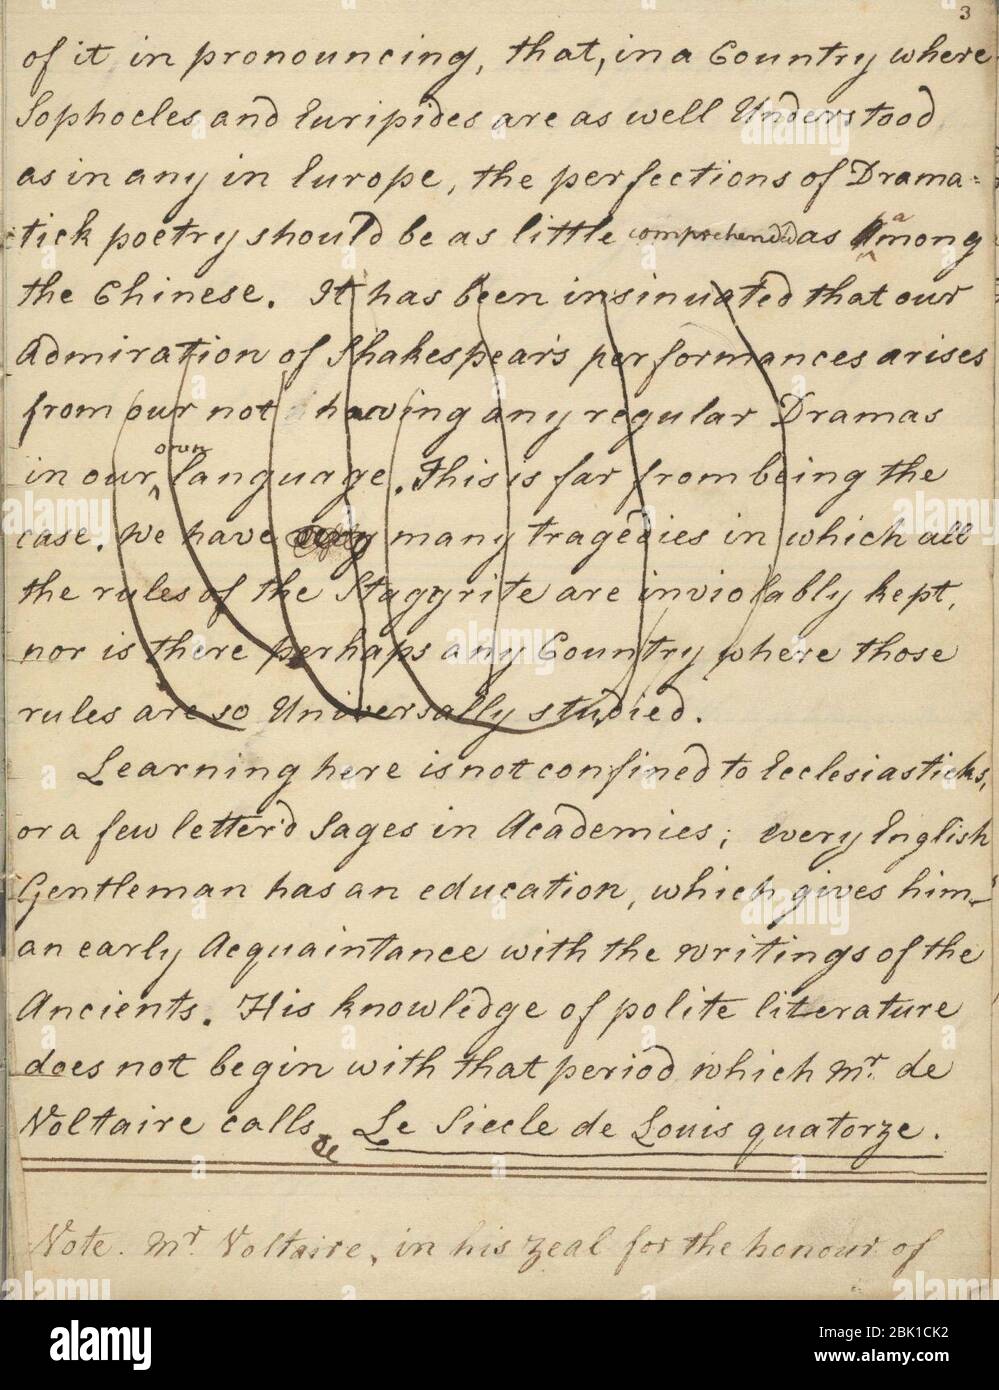 3
of it in pronouncing, that, in a Country where
Sophocles and Euripides are as well Understood
as in any in Europe, the perfections of Drama=
tick poetry should be as little comprehended as among
the Chinese. It has been insinuated that our
Admiration of Shakespear's performances arises
from our not having any regular Dramas
in our own language. This is far from being the
case. We have many tragedies in which all
the rules of the Stagyrite are inviolably kept,
nor is there perhaps any Country where those
rules are so Universally studied.
Learning here is not confined to Ecclesiasticks,
or a few letter'd Sages in Academies; every English
Gentleman has an education, which gives him
an early Acquaintance with the writings of the
Ancients. His knowledge of polite literature
does not begin with that period which Mr. de
Voltaire calls Le Siecle de Louis quatorze.
Note. Mr. Voltaire, in his zeal for the honour of
alamy
Image ID: 2BK1CK2
www.alamy.com